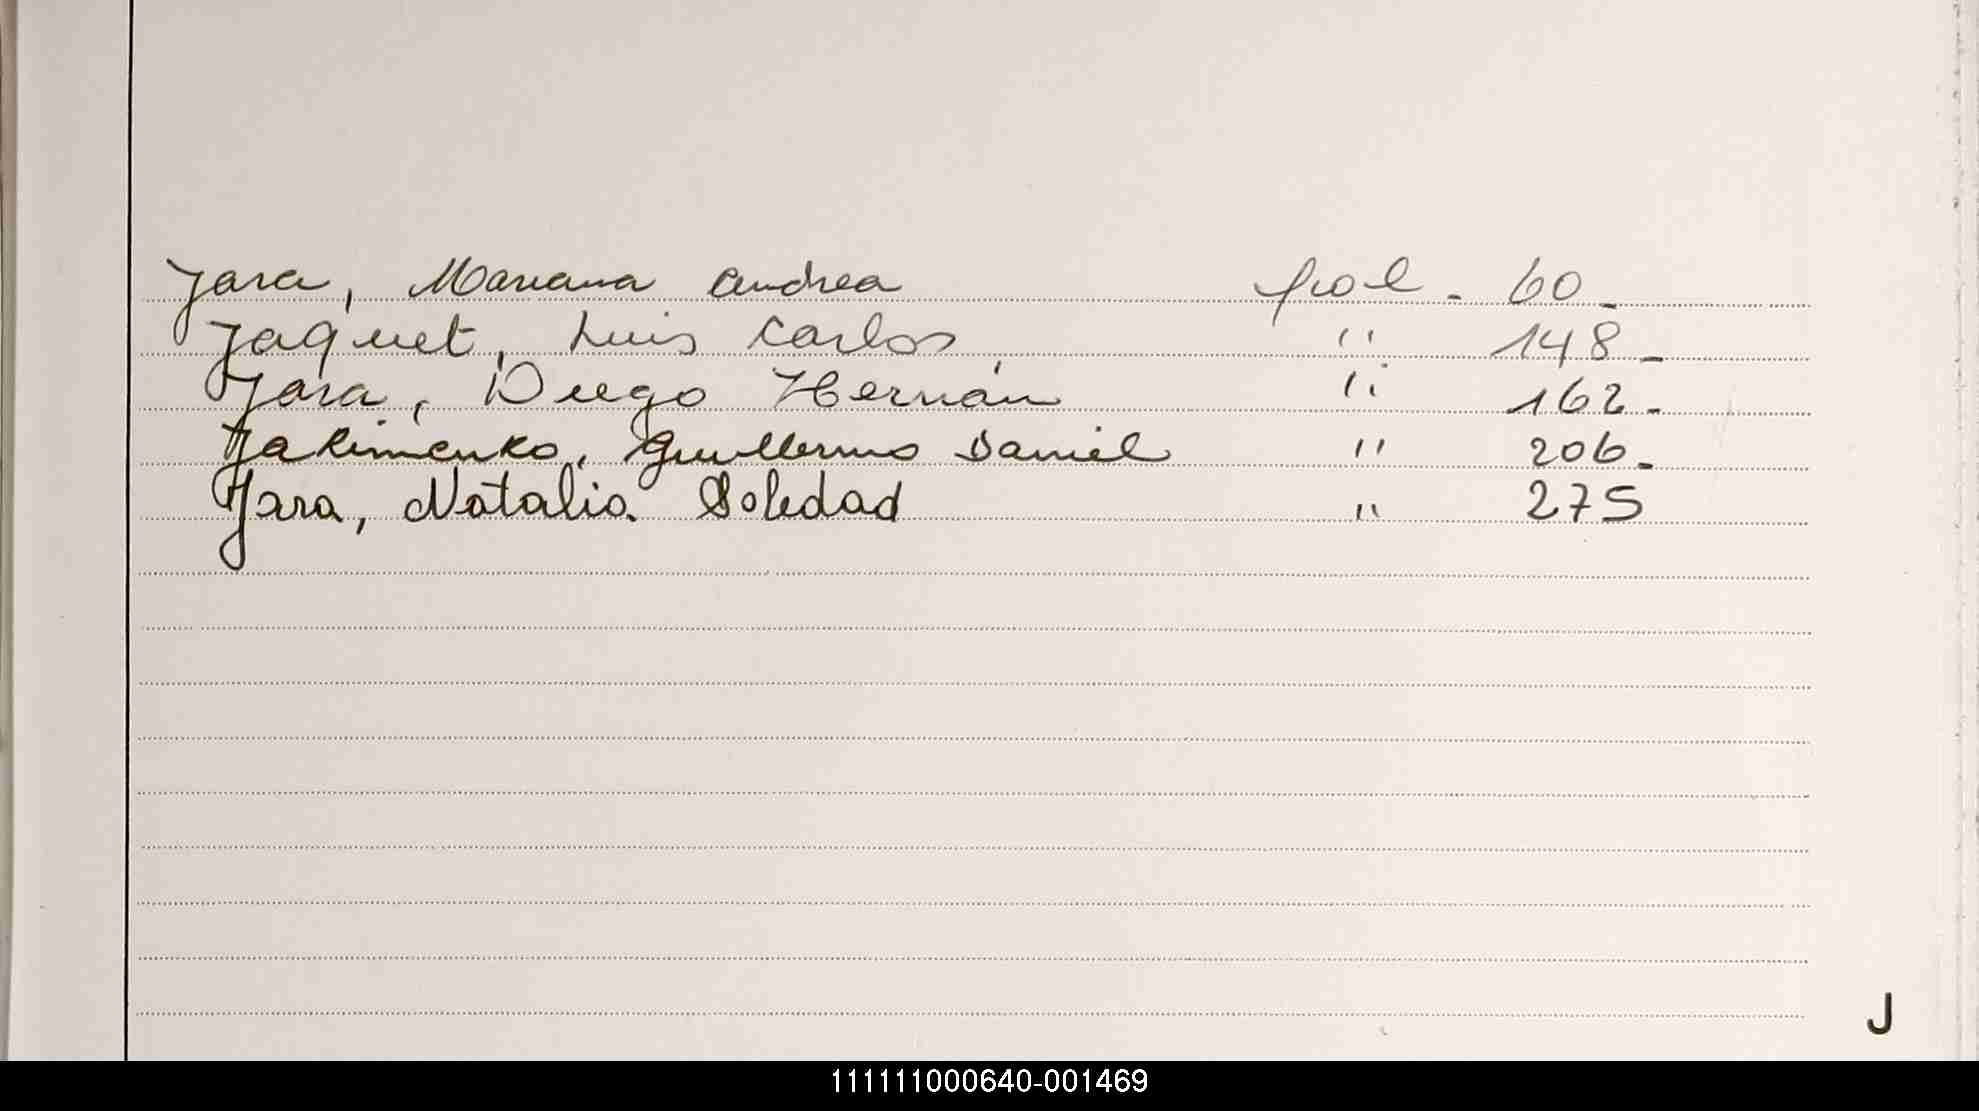 Jara, Mariana Andrea fol - 60 -
Jaquet, Luis Carlos " 148 -
Jara, Diego Hernán " 162 -
Jakimenko, Guillermo Daniel " 206 -
Jara, Natalia Soledad " 275
J
111111000640-001469